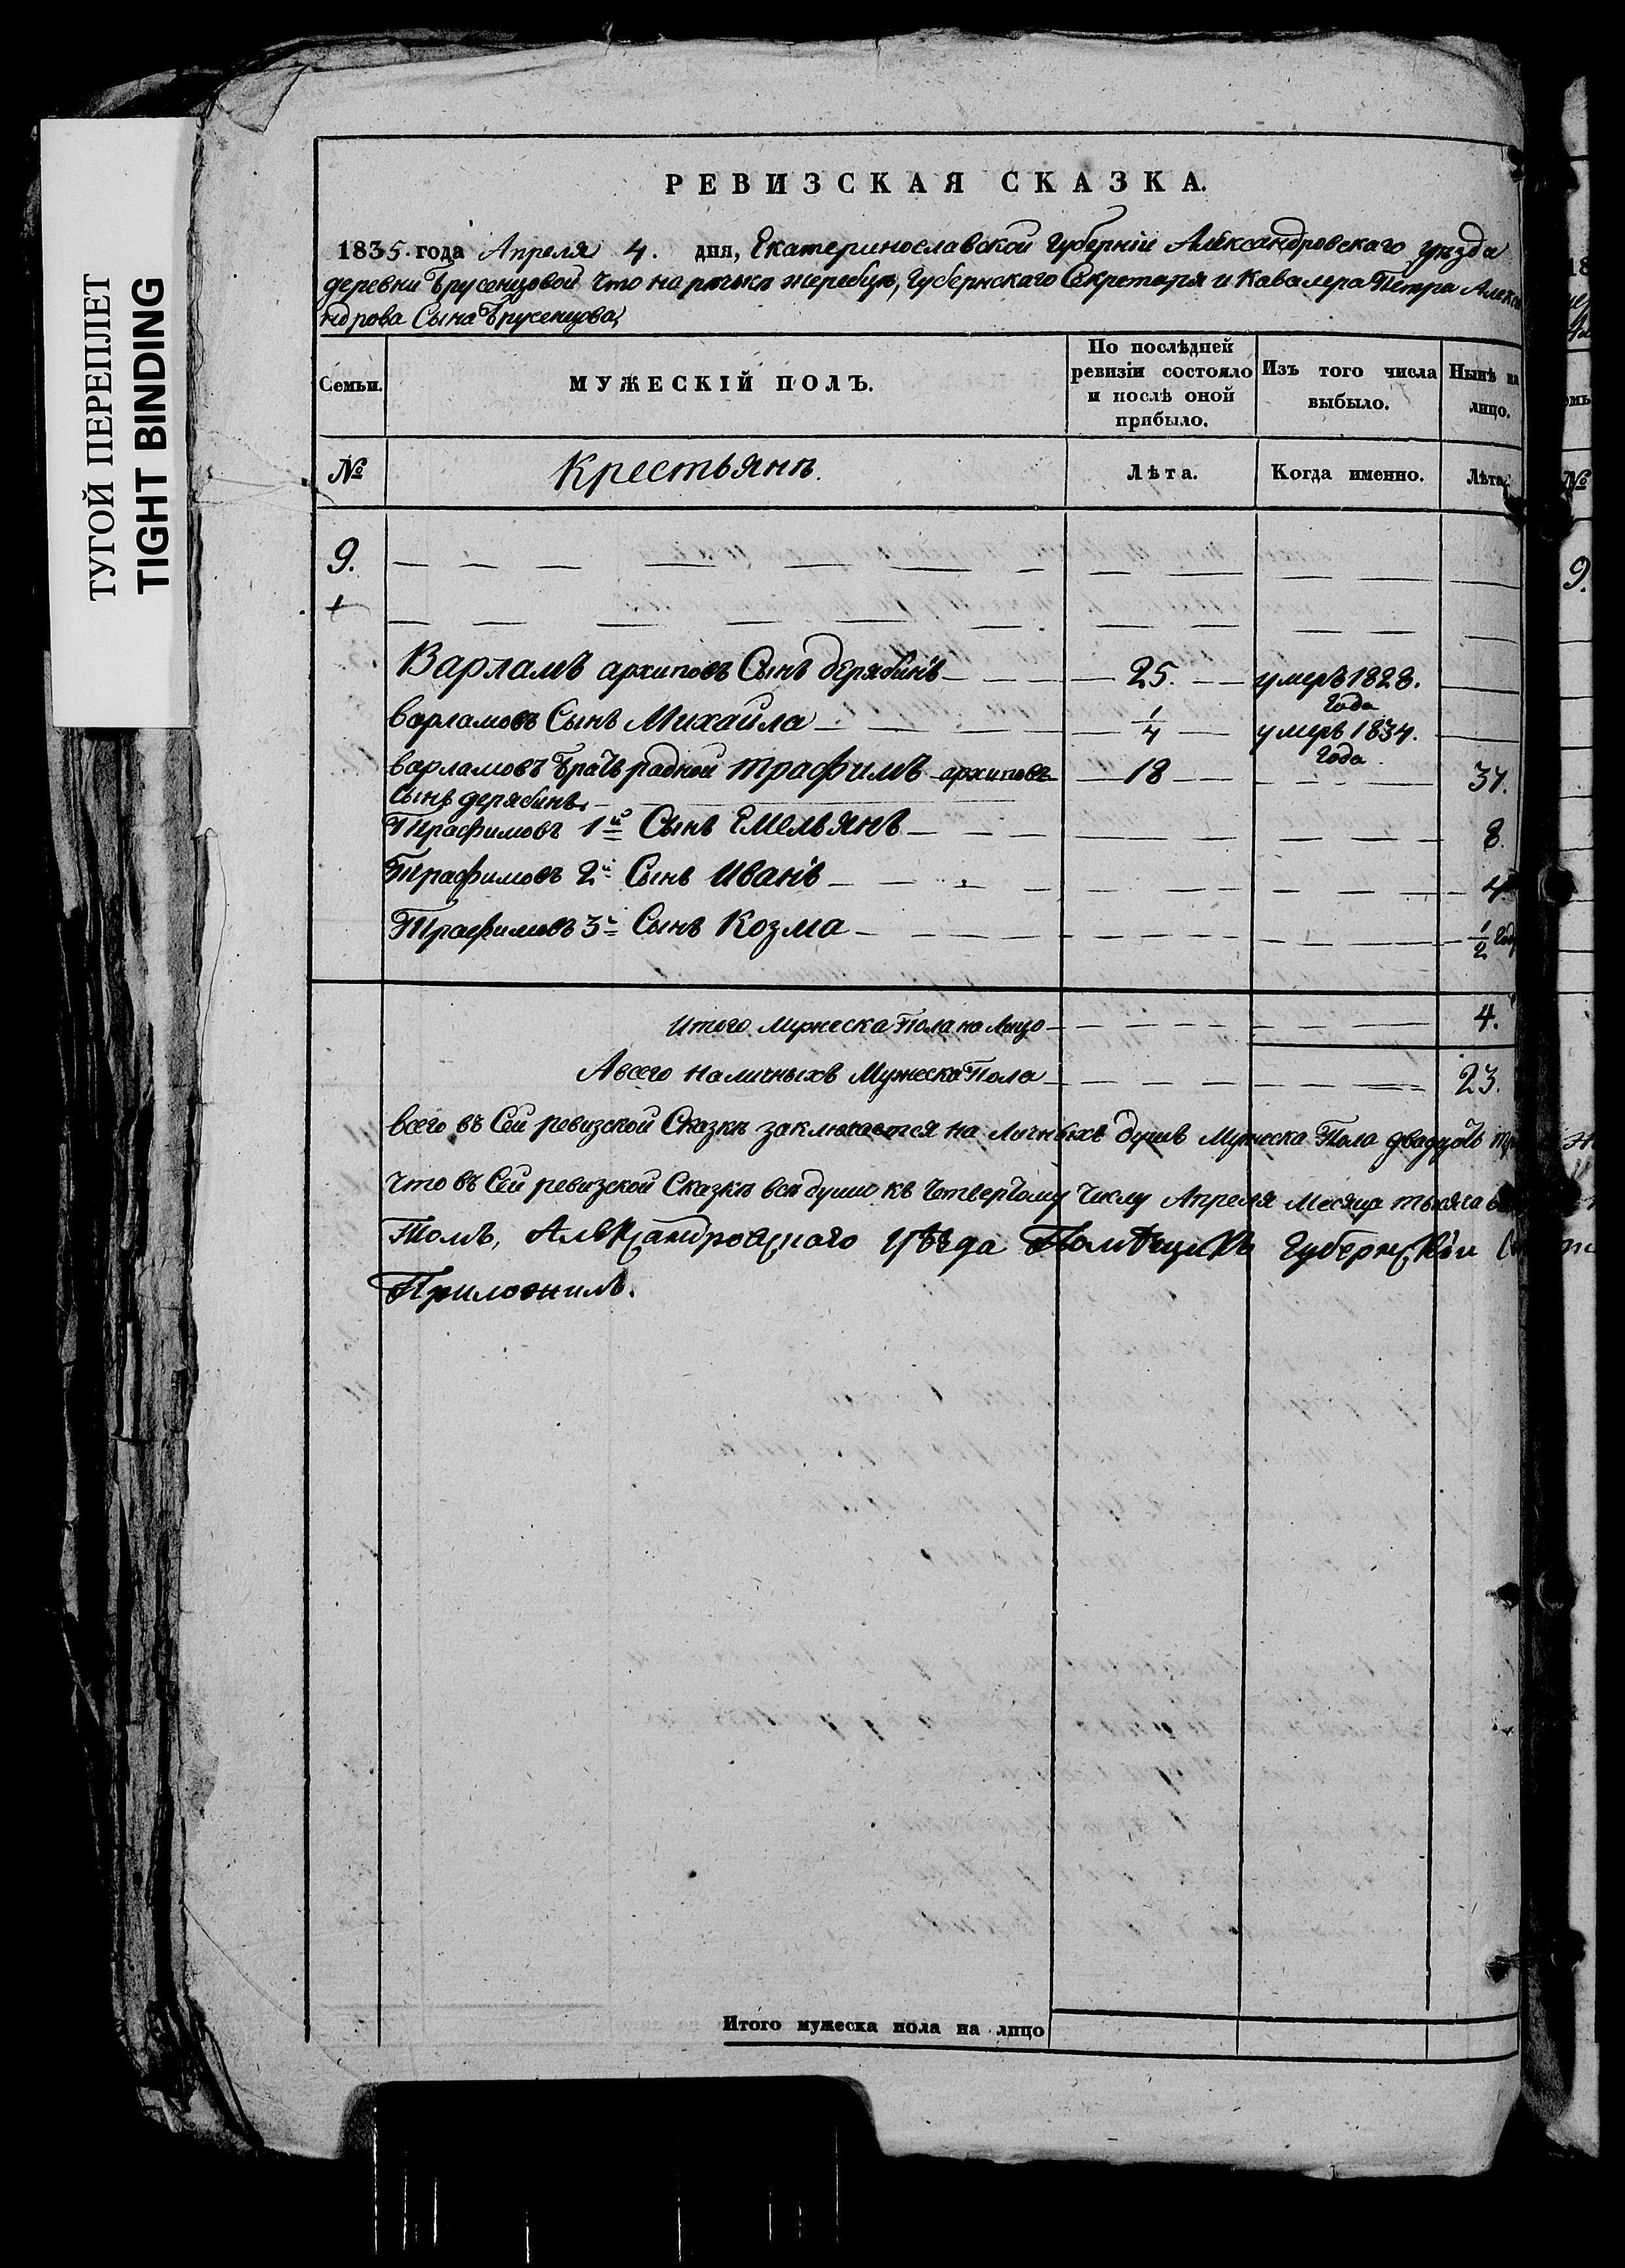 ТУГОЙ ПЕРЕПЛЕТ
TIGHT BINDING
РЕВИЗСКАЯ СКАЗКА.
1835. года Апреля 4. дня, Екатеринославской губерніи Александровскаго уѣзда
деревни Брусенцовой что на речкѣ жеребцѣ, Губернскаго Секретаря и Кавалера Петра Алекса
ндрова Сына Брусенцова,
Семьи.
МУЖЕСКІЙ ПОЛЪ.
По послѣдней ревизіи состояло и послѣ оной прибыло.
Изъ того числа выбыло.
Нынѣ на лицо.
№
Крестьянѣ.
Лѣта.
Когда именно.
Лѣта.
9.
Варламъ архиповъ Сынъ дерябинъ 25. умеръ 1828. года
варламовъ Сынъ Михайла 1/4 умеръ 1834. года
варламовъ братъ радной трафимъ архиповъ 18 37.
Сынъ дерябинъ.
Трафимовъ 1й Сынъ Емельянъ 8.
Трафимовъ 2й Сынъ Иванъ 4.
Трафимовъ 3й Сынъ Козма 1/2 год
Итого Мужеска Пола на Лицо 4.
А всего наличныхъ Мужеска Пола 23.
всего въ Сей ревизской Сказкѣ заключается на личныхъ душъ Мужеска Пола двадцать
что въ Сей ревизской Сказкѣ всѣ души къ четвертому числу Апреля Месяца тысяча
Томъ, Александровскаго уѣзда Помѣщикъ Губернскій
Приложилъ.
Итого мужеска пола на лицо
18
№
9.